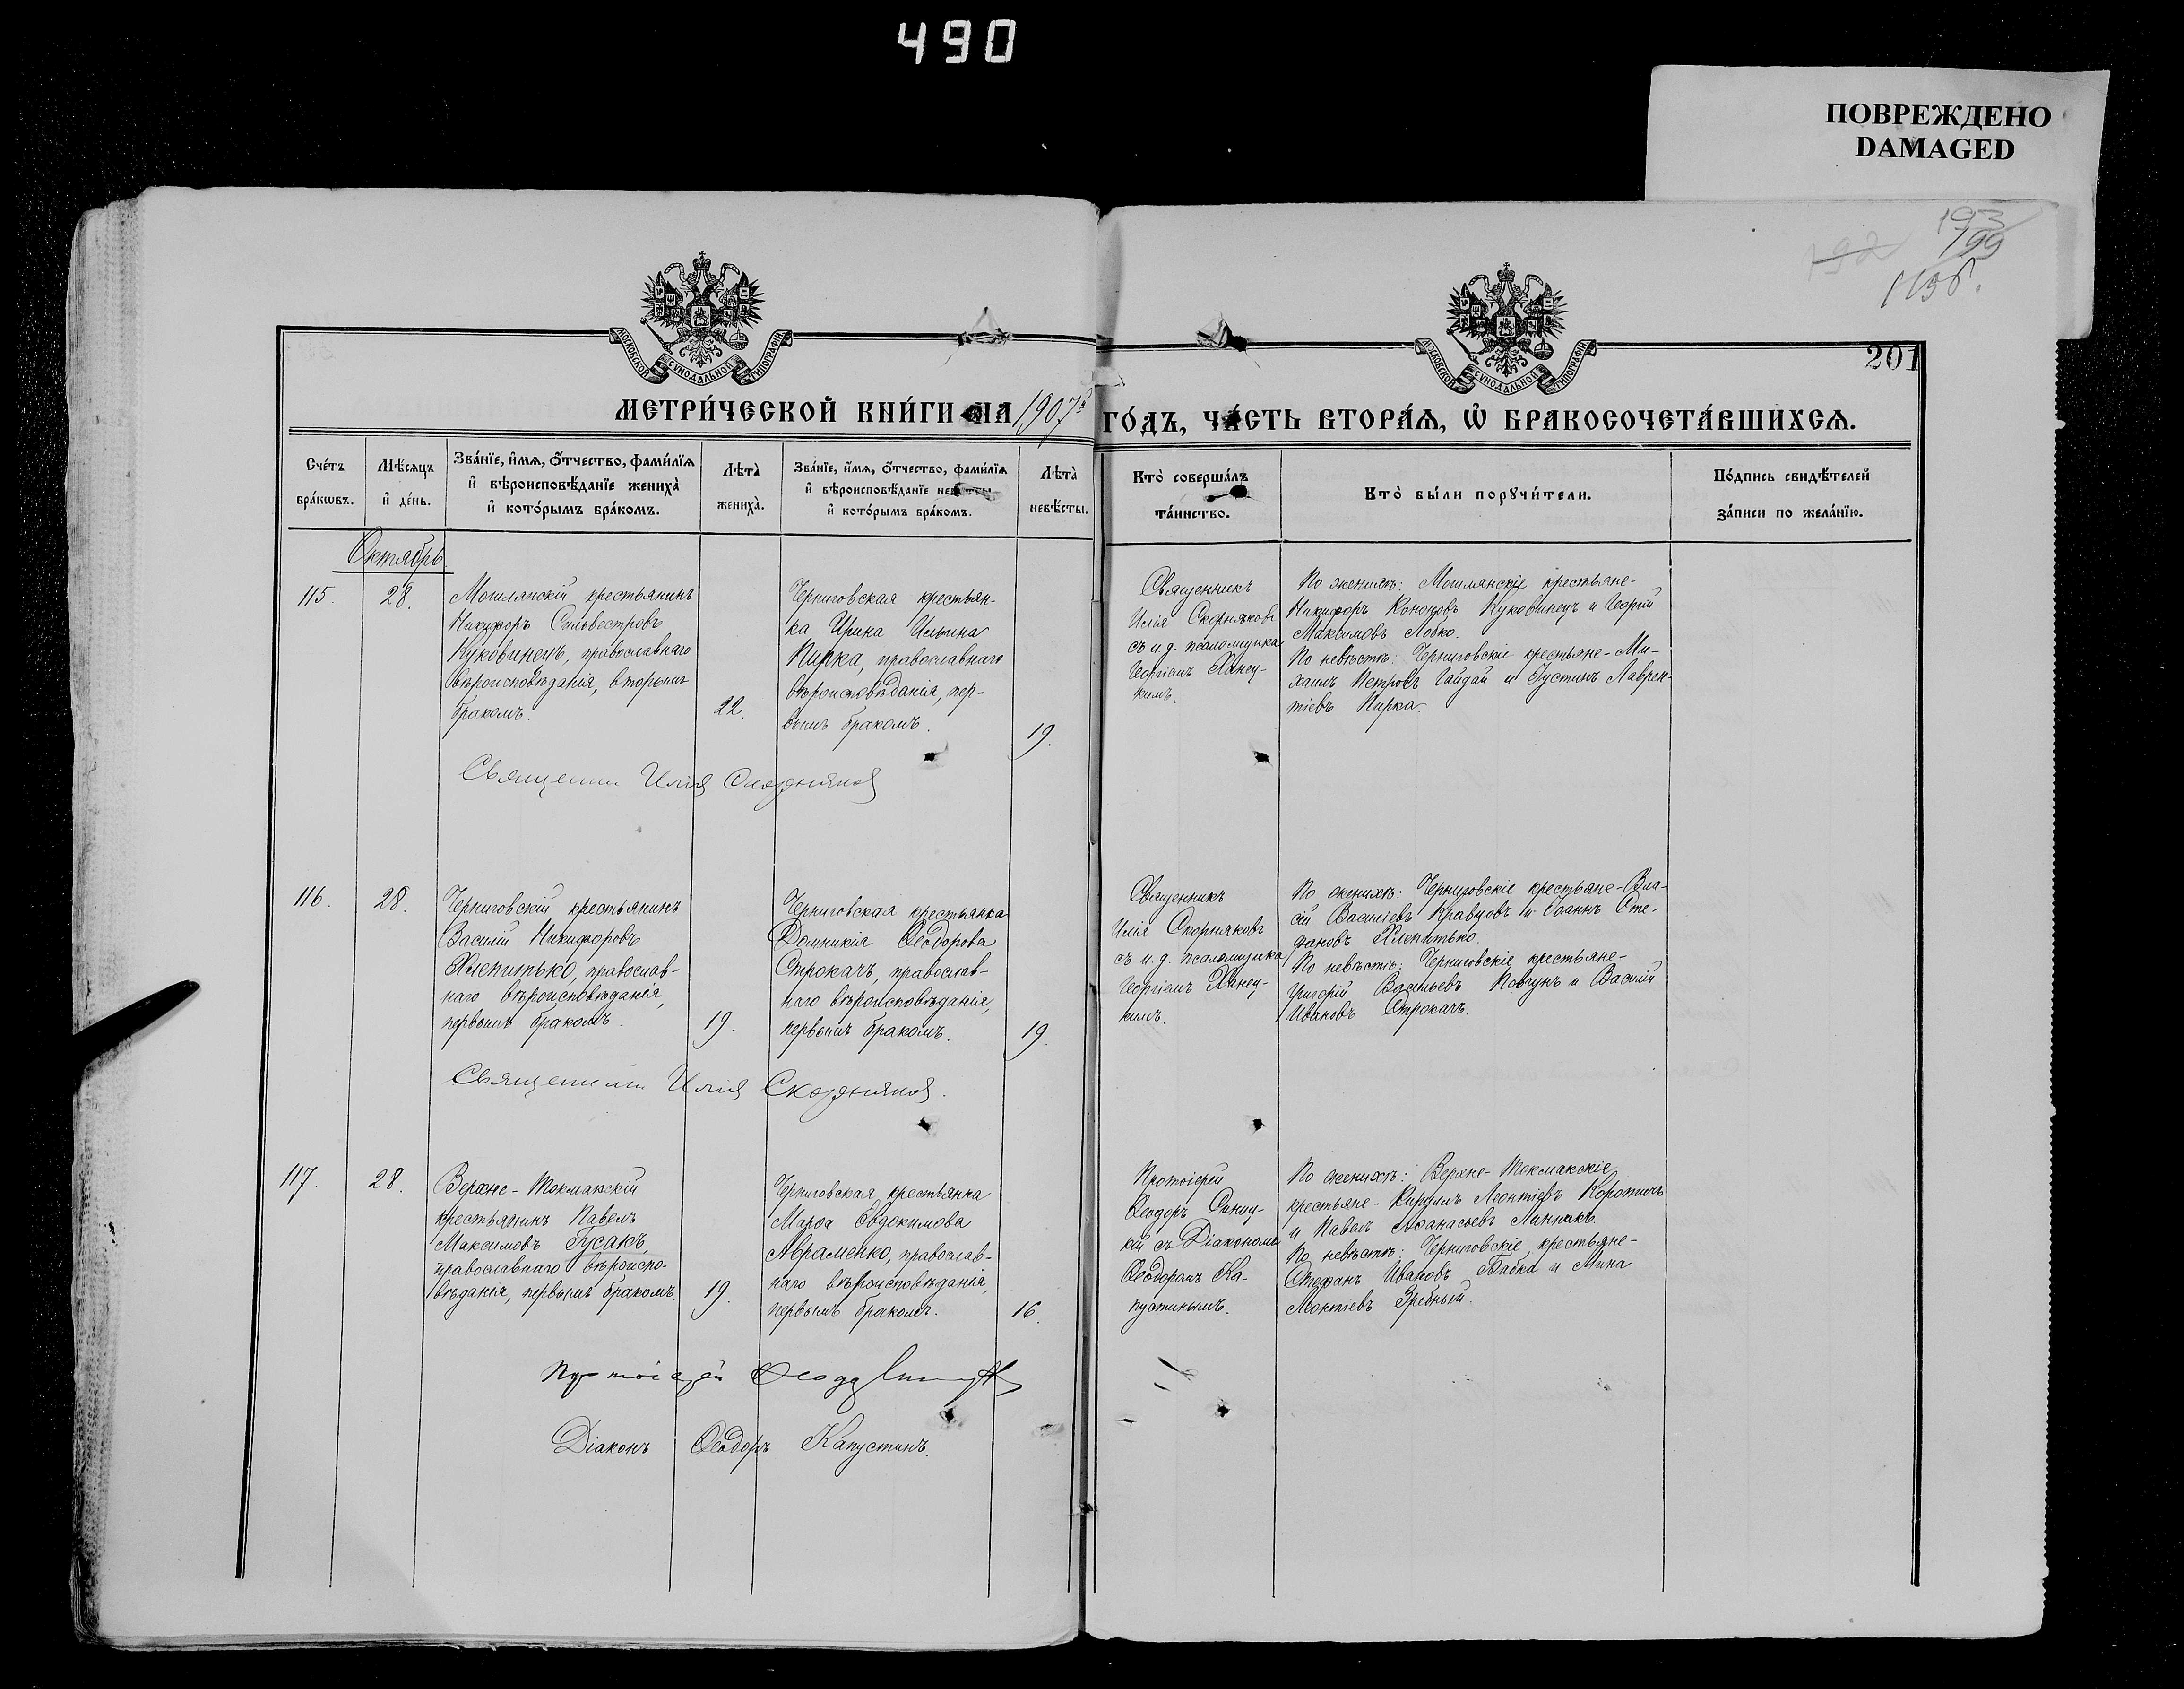 490
ПОВРЕЖДЕНО
DAMAGED
192
193
199
201
МОСКОВСКОЙ СѴНОДАЛЬНОЙ ТИПОГРАФІИ
МОСКОВСКОЙ СѴНОДАЛЬНОЙ ТИПОГРАФІИ
МЕТРИ́ЧЕСКОЙ КНИ́ГИ НА 1907й ГО́ДЪ, ЧА́СТЬ ВТОРА́Я, Ѡ БРАКОСОЧЕТА́ВШИХСЯ.
Сче́тъ
бра́кѡвъ.
Мѣ́сяцъ
и҆ де́нь.
Зва́нїе, и҆́мя, ѻ҆́тчество, фами́лїя
и҆ вѣроисповѣ́данїе жениха̀
и҆ кото́рымъ бра́комъ.
Лѣта̀
жениха̀.
Зва́нїе, и҆́мя, ѻ҆́тчество, фами́лїя
и҆ вѣроисповѣ́данїе невѣсты
и҆ кото́рымъ бра́комъ.
Лѣта̀
невѣ́сты.
Кто̀ соверша́лъ
та́инство.
Кто̀ бы́ли порꙋчи́тели.
По́дпись свидѣ́телей
за́писи по жела́нїю.
Октябрь
115.
28.
Могилянскій крестьянинъ
Никифоръ Сильвестровъ
Куковинецъ, православнаго
вѣроисповѣданія, вторымъ
бракомъ.
22.
Черниговская крестьян-
ка Ирина Ильина
Пирка, православнаго
вѣроисповѣданія, пер-
вымъ бракомъ.
19.
Священникъ
Илія Скорняковъ
съ и.д. псаломщика
Георгіемъ Ханец-
кимъ.
По женихѣ: Могилянскіе крестьяне-
Никифоръ Кононовъ Куковинецъ и Георгій
Максимовъ Лобко.
По невѣстѣ: Черниговскіе крестьяне- Ми-
хаилъ Петровъ Гайдай и Іустинъ Лаврен-
тіевъ Пирка.
Священникъ Илія Скорняковъ
116.
28.
Черниговскій крестьянинъ
Василій Никифоровъ
Хлепитько, православ-
наго вѣроисповѣданія,
первымъ бракомъ.
19.
Черниговская крестьянка
Домникія Ѳеодорова
Строкачъ, православ-
наго вѣроисповѣданія,
первымъ бракомъ.
19.
Священникъ
Илія Скорняковъ
съ и.д. псаломщика
Георгіемъ Ханец-
кимъ.
По женихѣ: Черниговскіе крестьяне- Вла-
сій Василіевъ Кравцовъ и Іоаннъ Сте-
фановъ Хлепитько.
По невѣстѣ: Черниговскіе крестьяне-
Григорій Васильевъ Ковгунъ и Василій
Ивановъ Строкачъ.
Священникъ Илія Скорняковъ.
117.
28.
Верхне-Токмакскій
крестьянинъ Павелъ
Максимовъ Гусакъ,
православнаго вѣроиспо-
вѣданія, первымъ бракомъ.
19.
Черниговская крестьянка
Марѳа Евдокимова
Авраменко, православ-
наго вѣроисповѣданія,
первымъ бракомъ.
16.
Протоіерей
Ѳеодоръ Синиц-
кій съ Діакономъ
Ѳеодоромъ Ка-
пустинымъ.
По женихѣ: Верхне-Токмакскіе
крестьяне- Кириллъ Леонтіевъ Коротичъ
и Павелъ Аѳанасьевъ Линникъ.
По невѣстѣ: Черниговскіе крестьяне-
Стефанъ Ивановъ Бабка и Мина
Леонтіевъ Гребный.
Протоіерей Ѳеодоръ
Діаконъ Ѳеодоръ Капустинъ.